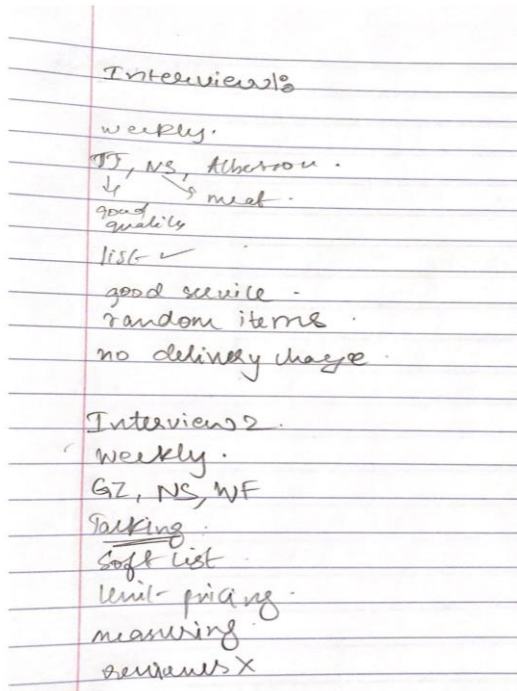 Interview 1:
weekly.
TJ, NS, Albertson.
good meat.
quality
list ✓
good service -
random items.
no delivery charge.
Interview 2.
weekly.
GZ, NS, WF
Soft list
unit-pricing.
measuring.